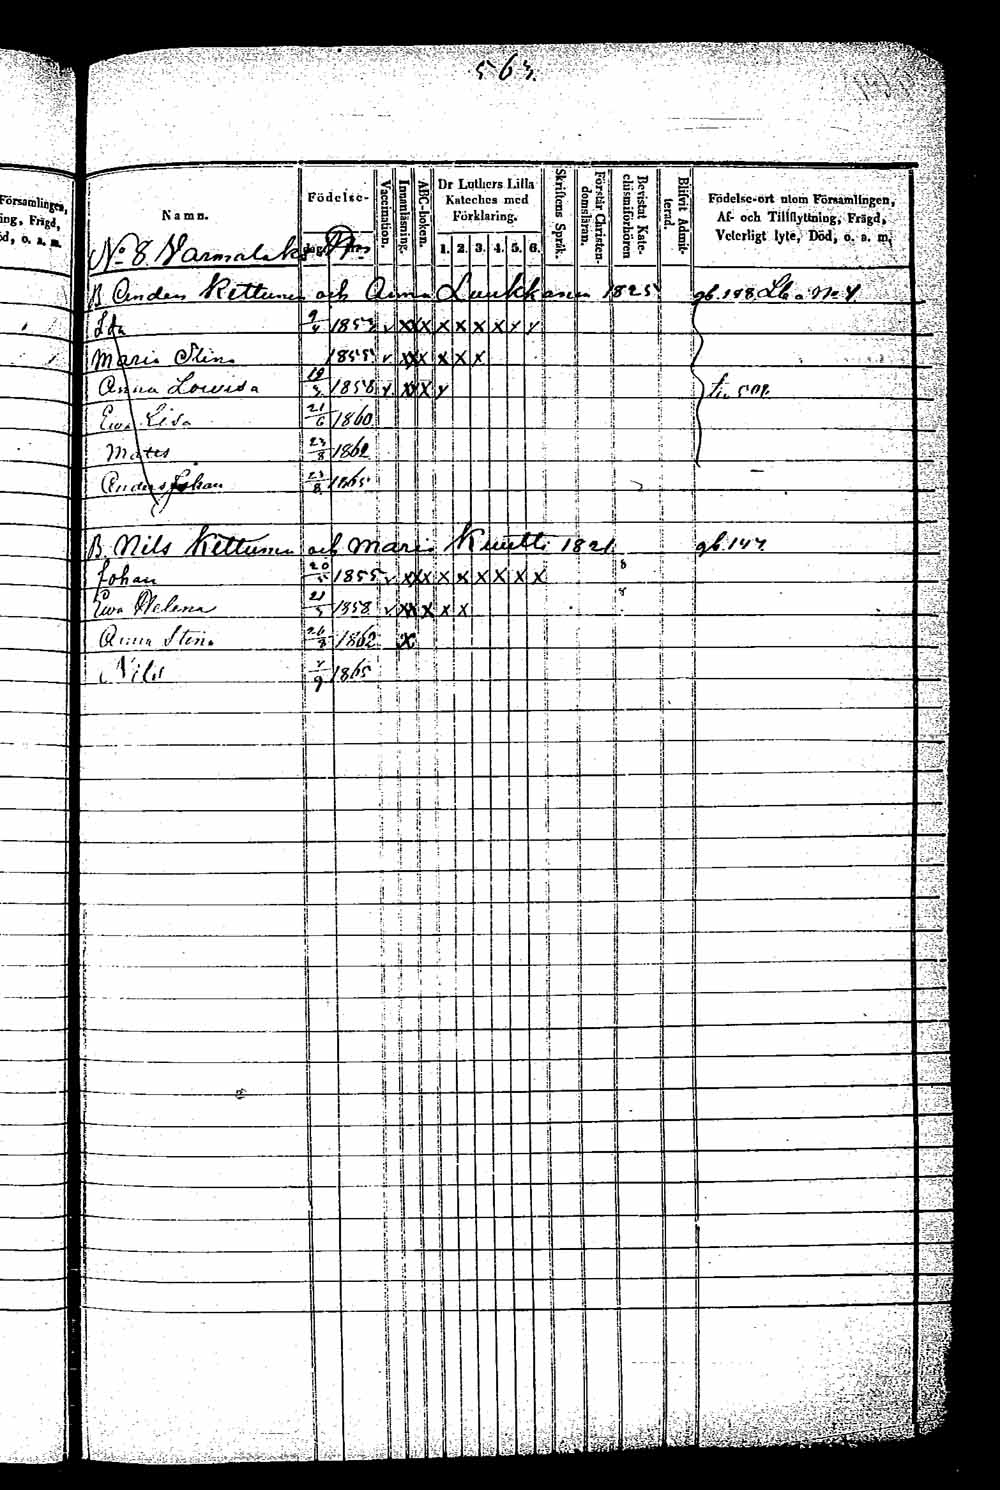 563.
Församlingen,
ing, Frägd,
öd, o. s. m.
Namn. Födelse- Vaccination. Innanläsning. ABC-boken. Dr Luthers Lilla Kateches med Förklaring. 1. 2. 3. 4. 5. 6. Skriftens Språk. Förstår Christendomsläran. Bevistat Katechismiförhören Blifvit Admitterad. Födelse-ort utom Församlingen, Af- och Tillflyttning, Frägd, Veterligt lyte, Död, o. s. m.
No 8. Varmalaks
B. Anders Kettunen och Anna Luukkanen 1825 gb. 198
Ida 9/4 1853 v x x x x x x x x
Maria Stina 1855 v x x x x x x
Anna Lovisa 1858 v x x x
Ewa Lisa 21/6 1860
Mats 23/8 1862
Anders Johan 23/8 1865
B. Nils Kettunen och Maria Kuutti 1821. gb. 147.
Johan 20/5 1855 v x x x x x x x x x 8
Ewa Helena 21/5 1858 v x x x x x 8
Anna Stina 26/8 1862 x
Nils 1865